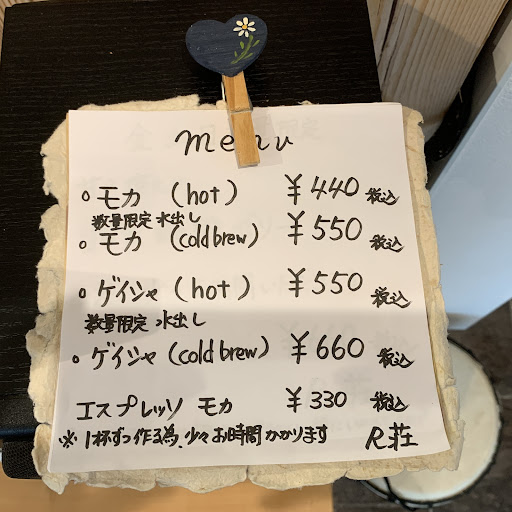 menu
○ モカ (hot) ¥440 税込
数量限定 水出し
○ モカ (cold brew) ¥550 税込
○ ゲイシャ (hot) ¥550 税込
数量限定 水出し
○ ゲイシャ (cold brew) ¥660 税込
エスプレッソ モカ ¥330 税込
※ 1杯ずつ作る為、少々お時間かかります R荘